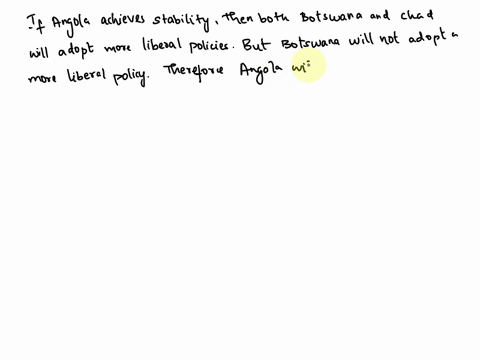 If Angola achieves stability, then both Botswana and chad
will adopt more liberal policies. But Botswana will not adopt a
more liberal policy. Therefore Angola wi